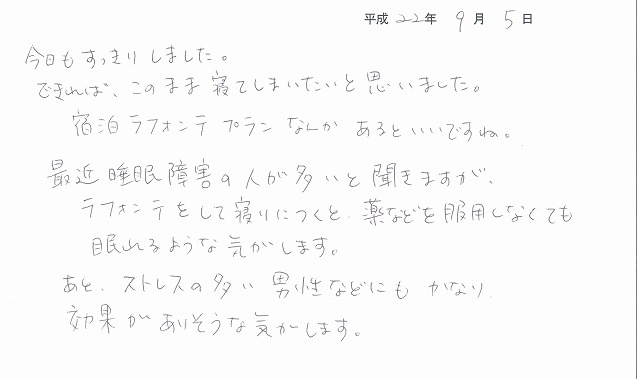 平成22年 9月 5日
今日もすっきりしました。
できれば、このまま寝てしまいたいと思いました。
宿泊ラフォンテプランなんかあるといいですね。
最近睡眠障害の人が多いと聞きますが、
ラフォンテをして寝りにつくと、薬などを服用しなくても
眠れるような気がします。
あと、ストレスの多い男性などにもかなり
効果がありそうな気がします。